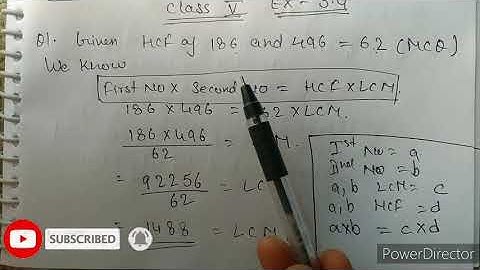 Class V Ex-3.4
Q1. Given HCF of 186 and 496 = 62 (MCQ)
We know
First No X Second No = HCF X LCM.
186 X 496 = 62 X LCM.
186 X 496 / 62 = M.
= 92256 / 62 = LC
= 1488 = LCM
Ist No = a
IInd No = b
a, b LCM = c
a, b HCF = d
axb = cxd
SUBSCRIBED
PowerDirector